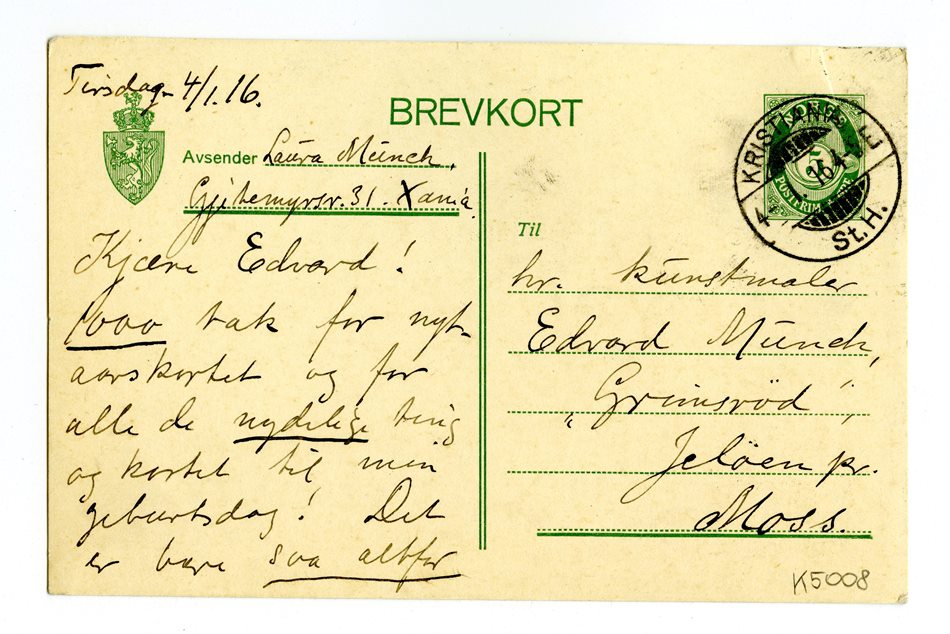 Tirsdag 4/1.16.
BREVKORT
Avsender Laura Münch,
Gjetemyrsv. 31. Xania.
Kjære Edvard!
1000 tak for nyt-
aarskortet og for
alle de nydelige ting
og kortet til min
geburtsdag! Det
er bare saa altfor
NORGE
5
POSTFRIM. ØRE
KRISTIANIA E
4 I 16.4-
St.H.
Til
hr. kunstmaler
Edvard Münch,
„Grimsröd",
Jelöen pr.
Moss.
K5008